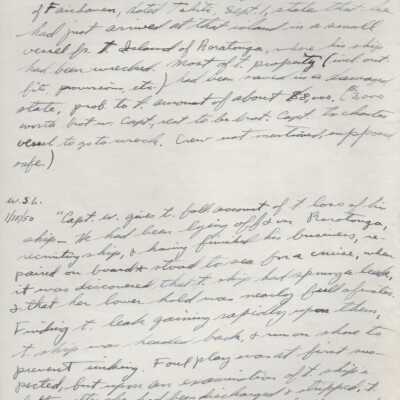 of Fairhaven, dated Tahiti, Sept. 1, state that he
had just arrived at that island in a small
vessel fr. t. Island of Raratonga, where his ship
had been wrecked. Most of t. property (incl. out-
fit, provisions, etc.) had been saved in a damaged
state, prob. to t. amount of about $8,000. ($2,000
worth brot w. Capt., rest to be brot. Capt. to charter
vessel to go to wreck. Crew not mentioned, supposed
safe.)
W.S.L.
"Capt. W. gives t. foll. account of t. loss of his
ship— He had been lying off & on Raratonga,
recruiting ship, & having finished his business, re-
paired on board & stood to sea for a cruise, when
it was discovered that t. ship had sprung a leak,
& that her lower hold was nearly full of water.
Finding t. leak gaining rapidly upon them,
t. ship was headed back, & run on shore to
prevent sinking. Foul play was at first sus-
pected, but upon an examination of t. ship's
after she had been discharged & stripped, t.